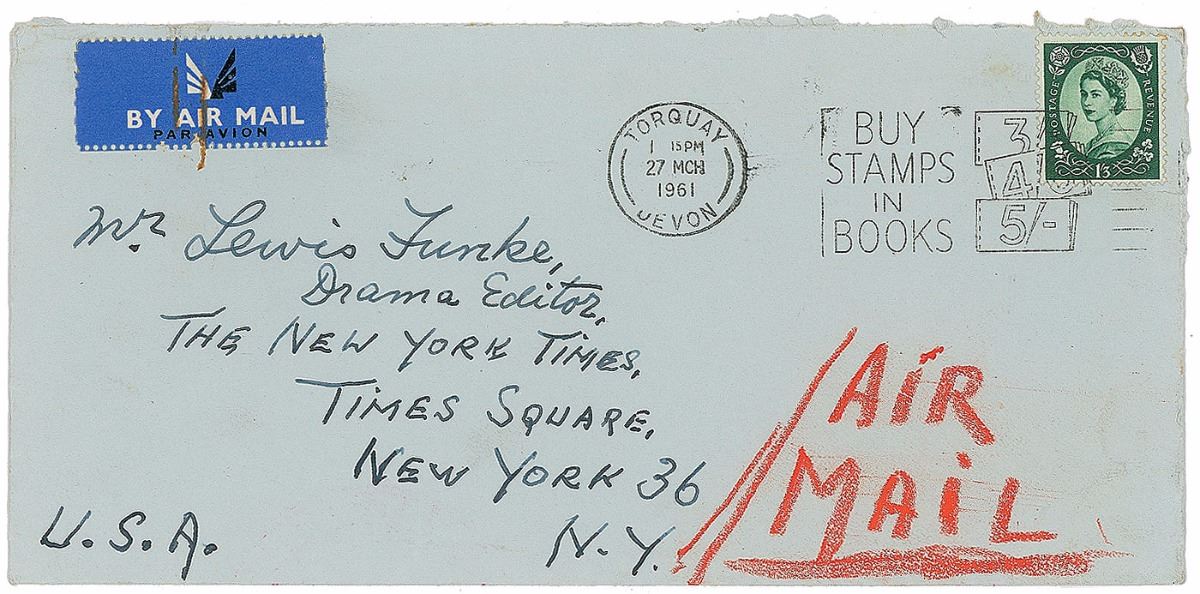 BY AIR MAIL
PAR AVION
TORQUAY
1 15 PM
27 MCH
1961
DEVON
BUY
STAMPS
IN
BOOKS
3/-
4/6
5/-
POSTAGE REVENUE
1/3
Mr. Lewis Funke,
Drama Editor,
THE NEW YORK TIMES,
TIMES SQUARE,
NEW YORK 36
N.Y.
U.S.A.
AIR
MAIL